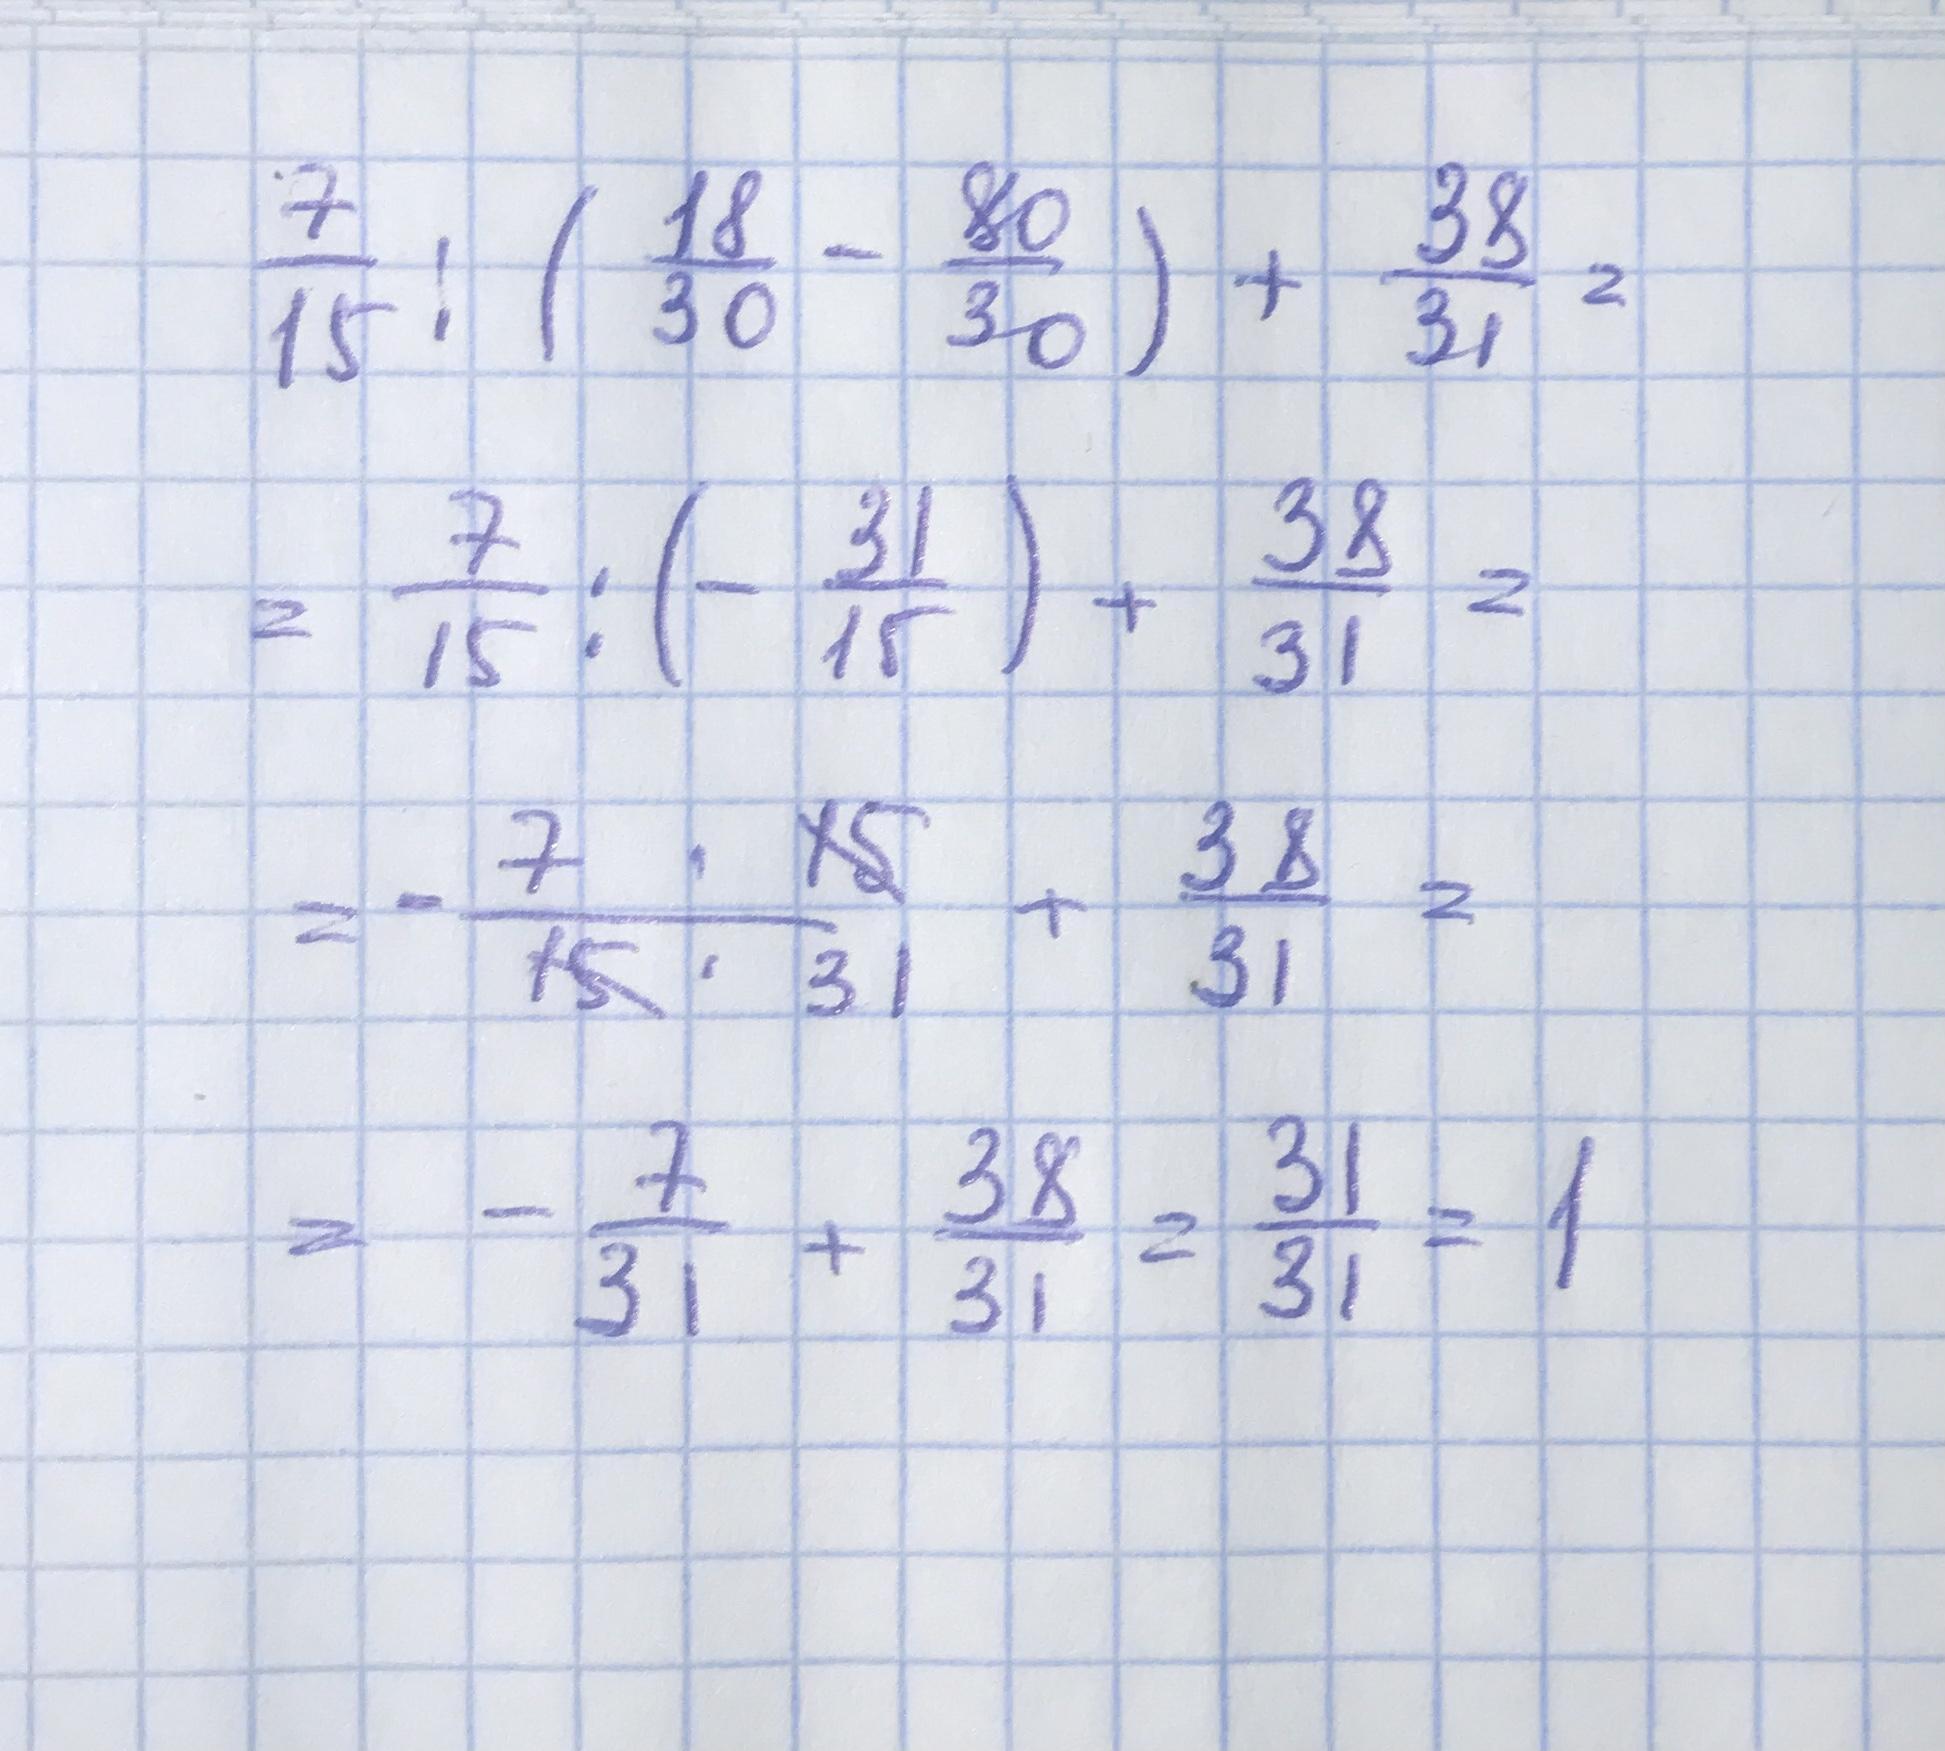 7/15 : (18/30 - 80/30) + 38/31 =
= 7/15 : (- 31/15) + 38/31 =
= - 7 · 15 / 15 · 31 + 38/31 =
= - 7/31 + 38/31 = 31/31 = 1